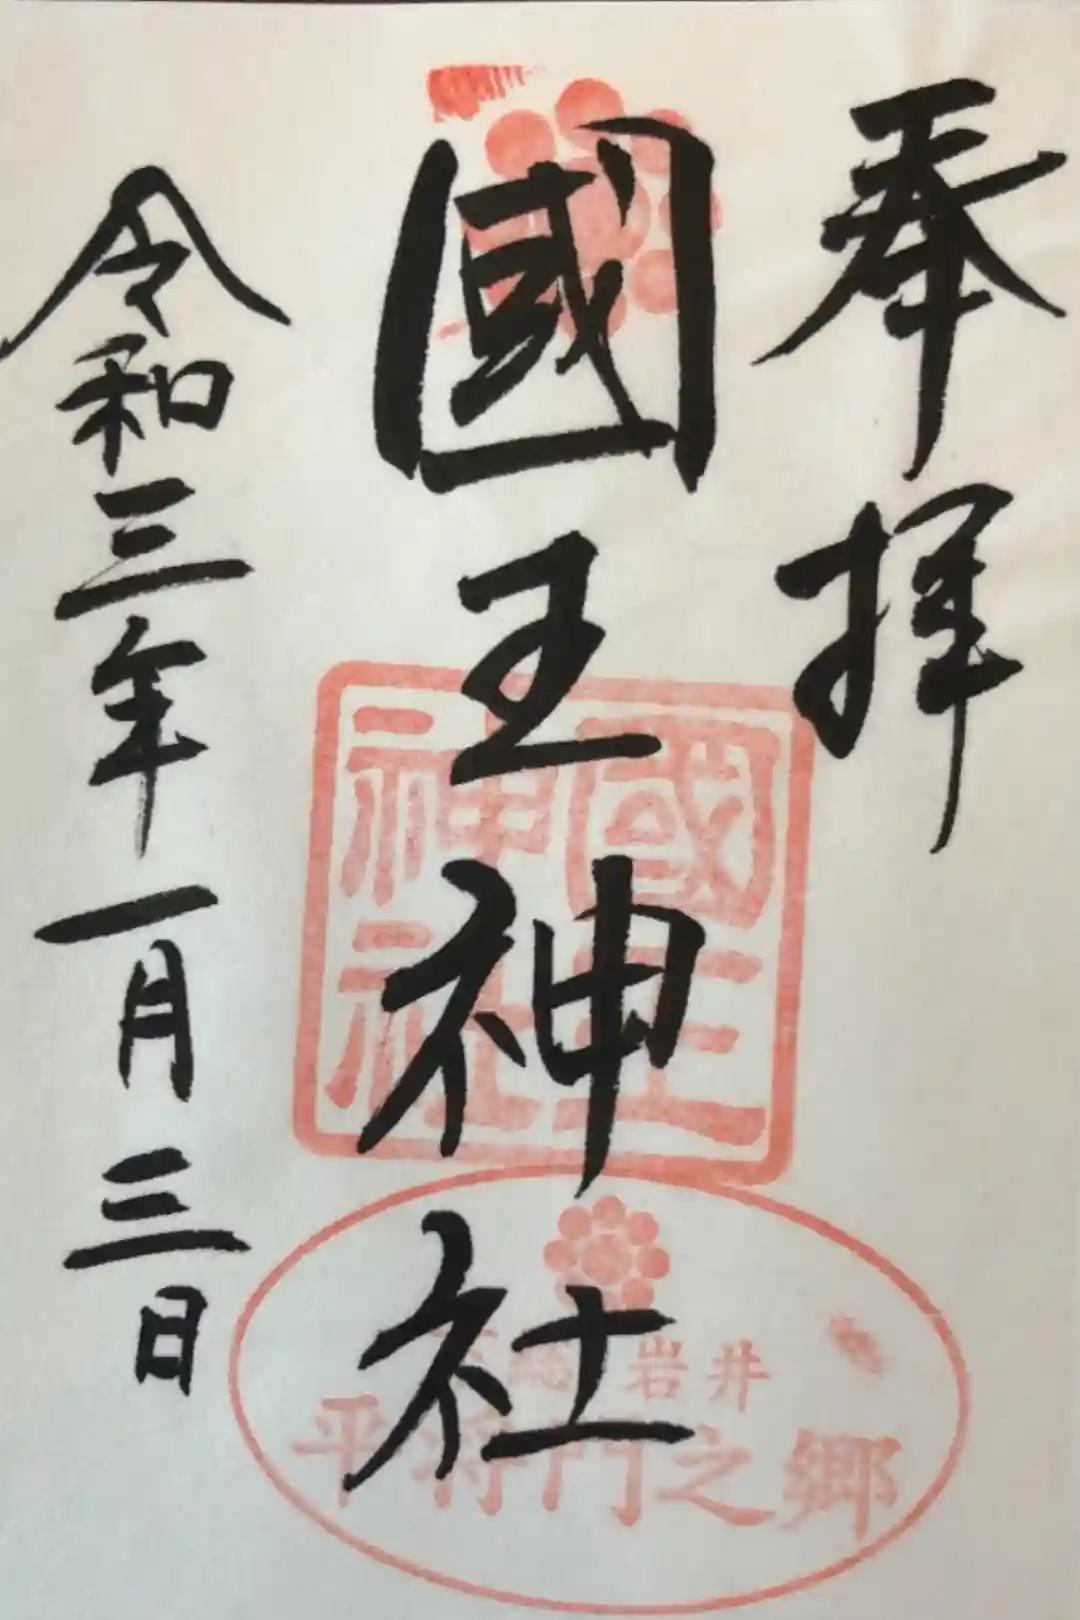 奉拝
國王神社
令和三年一月三日
國王
神社
総 岩井
平将門之郷